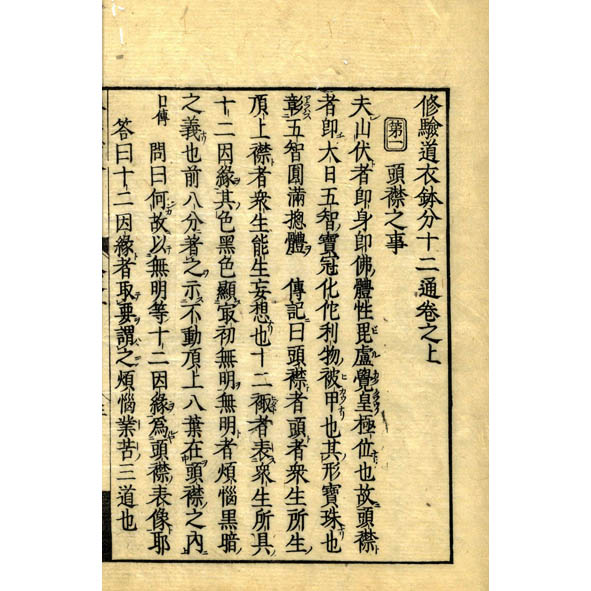 修驗道衣鉢分十二通卷之上
第一 頭襟之事
夫山伏者即身即佛體性毘盧覺皇極位也故頭襟
者即大日五智寶冠化佗利物被甲也其形寶珠也
彰五智圓滿摠體 傳記曰頭襟者頭者衆生所生
頂上襟者衆生能生妄想也十二襵者表衆生所具
十二因緣其色黑色顯㝡初無明無明者煩惱黑暗
之義也前八分著之示不動頂上八葉在頭襟之內
口傳 問曰何故以無明等十二因緣爲頭襟表像耶
答曰十二因緣者取要謂之煩惱業苦三道也